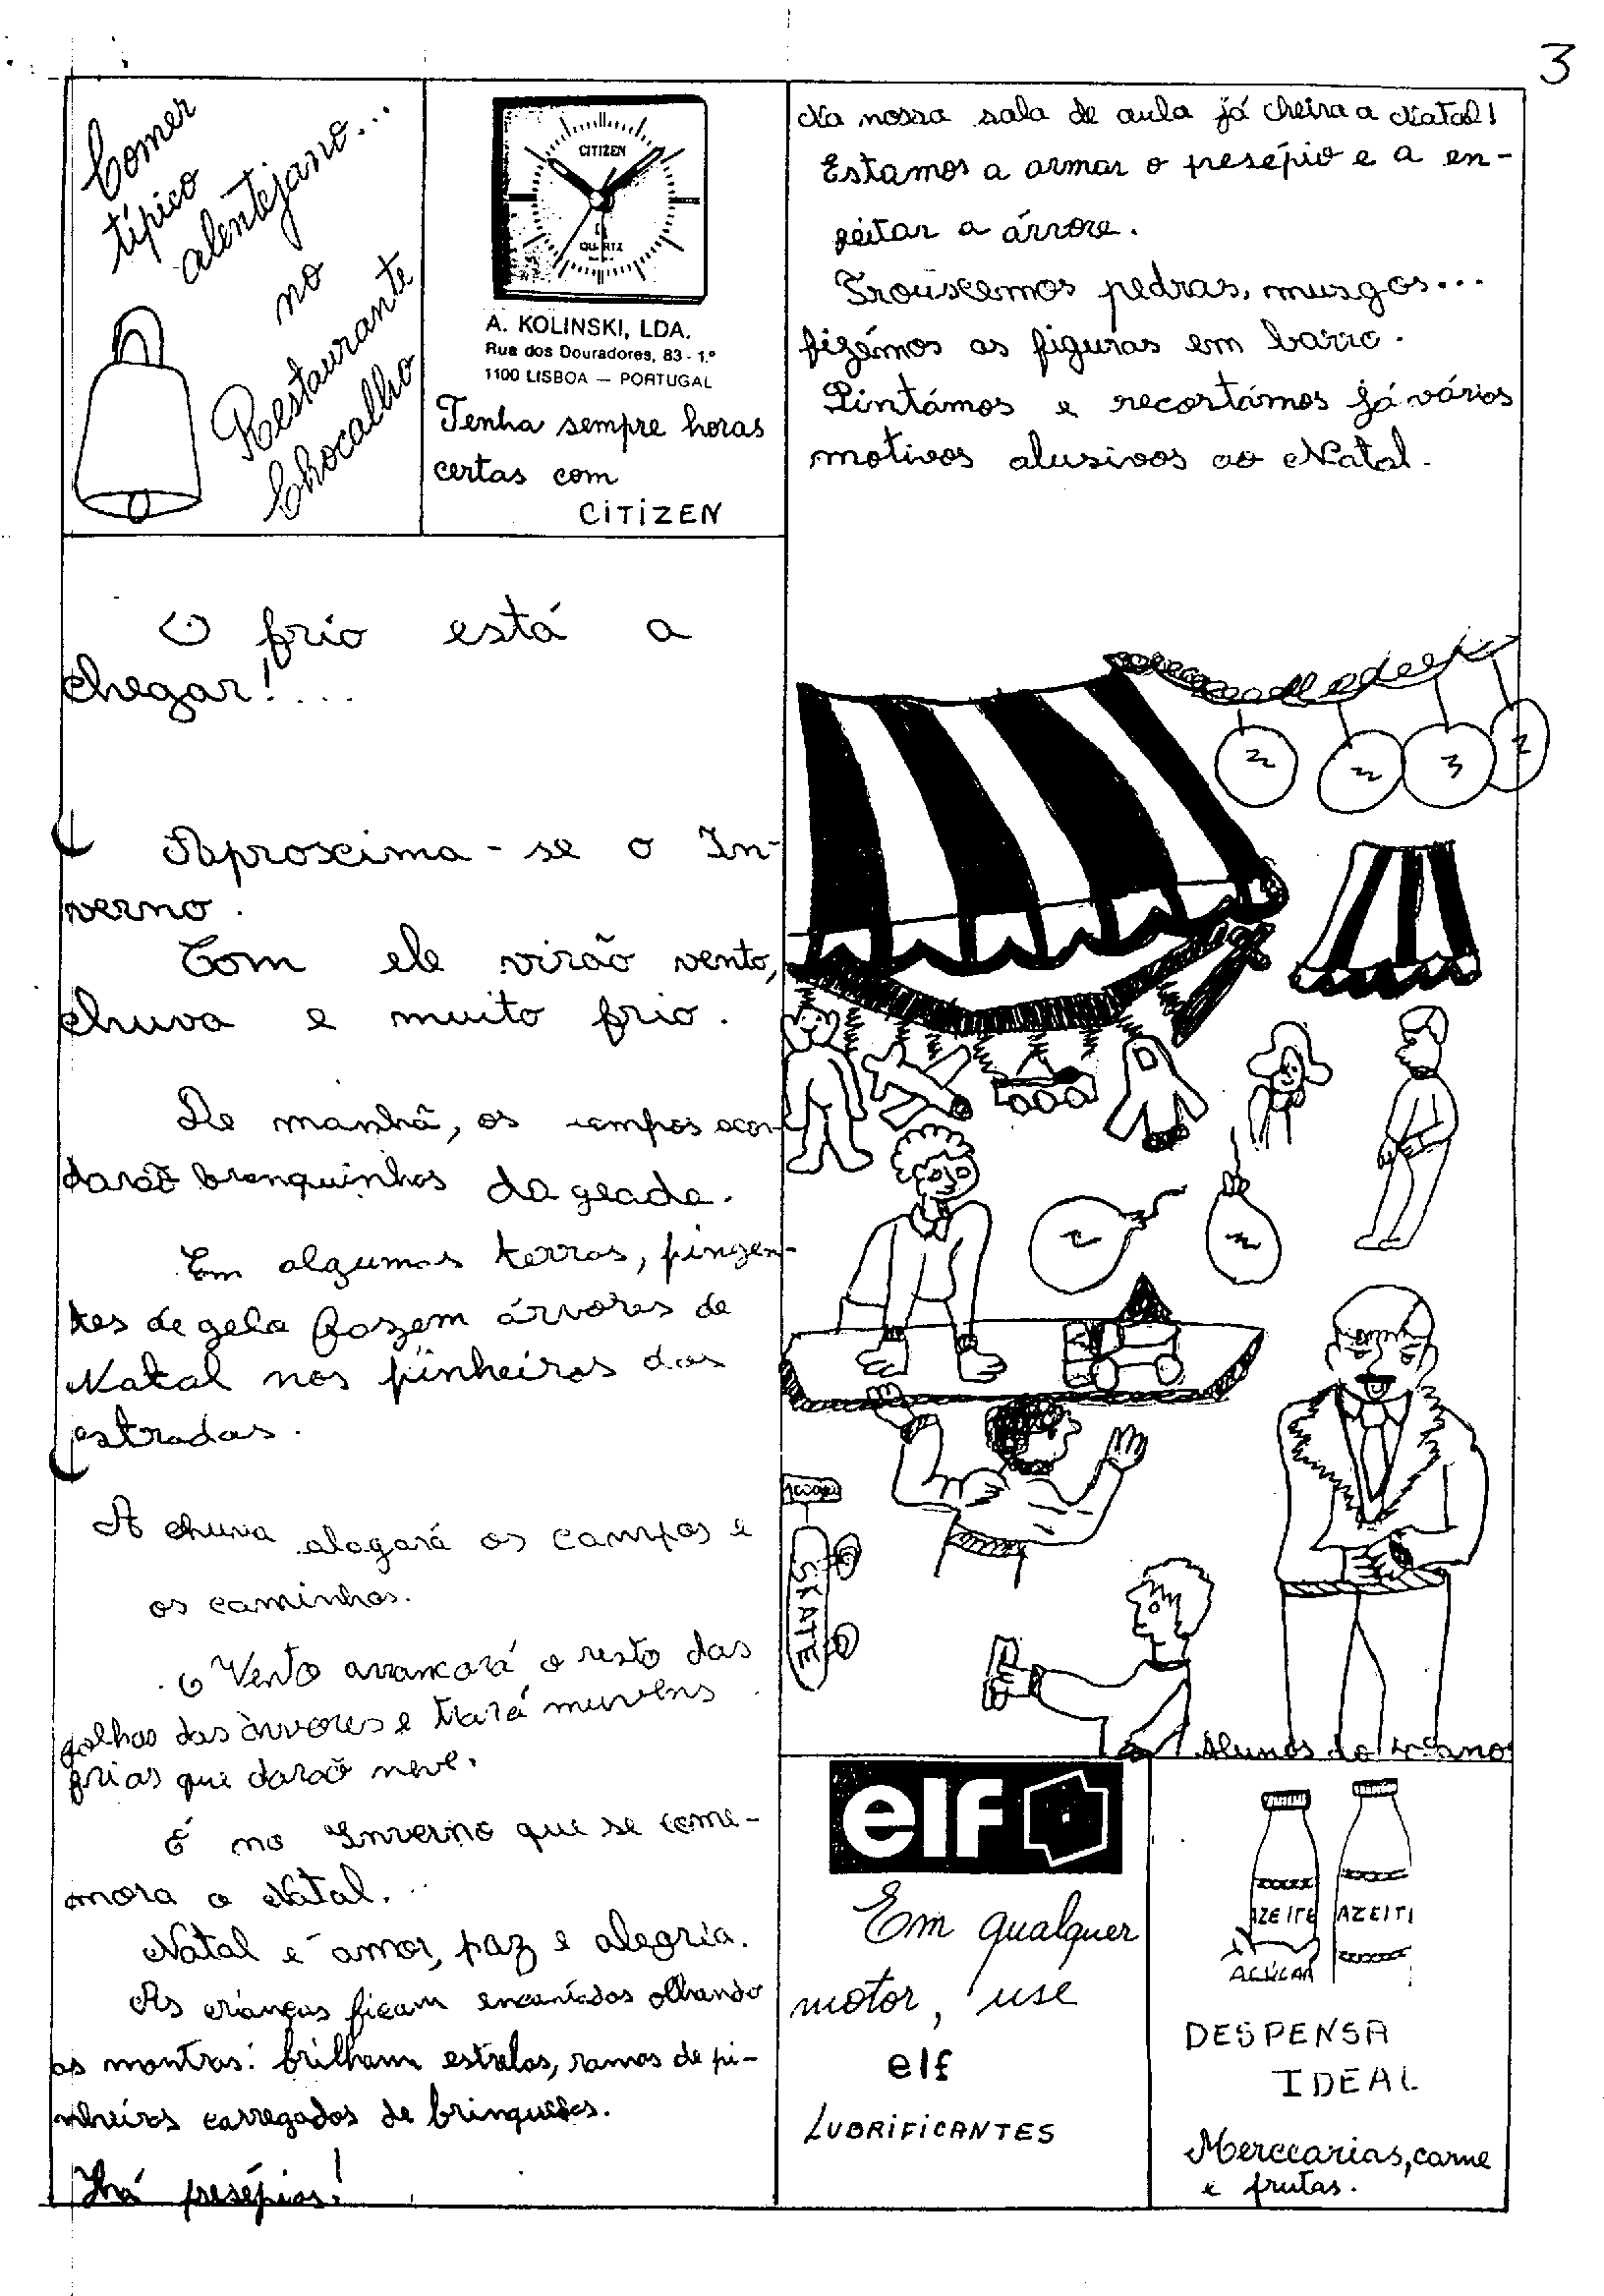 3
Comer
típico
alentejano...
no
Restaurante
Chocalho
CITIZEN
QUARTZ
A. KOLINSKI, LDA.
Rua dos Douradores, 83 - 1.º
1100 LISBOA — PORTUGAL
Tenha sempre horas
certas com
CITIZEN
O frio está a
chegar!...
Aproxima-se o In-
verno.
Com ele virão vento,
chuva e muito frio.
De manhã, os campos acor-
darão branquinhos da geada.
Em algumas terras, pingen-
tes de gelo fazem árvores de
Natal nos pinheiros das
estradas.
A chuva alagará os campos e
os caminhos.
O Vento arrancará o resto das
folhas das árvores e trará nuvens
frias que darão neve.
É no Inverno que se come-
mora o Natal...
Natal é amor, paz e alegria.
As crianças ficam encantadas olhando
as montras: brilham estrelas, ramos de pi-
nheiros carregados de brinquedos.
Há presépios!
Na nossa sala de aula já cheira a Natal!
Estamos a armar o presépio e a en-
feitar a árvore.
Trouxemos pedras, musgos...
fizémos as figuras em barro.
Pintámos e recortámos já vários
motivos alusivos ao Natal.
SKATE
Alunos do 4º ano
elf
Em qualquer
motor, use
elf
LUBRIFICANTES
AZEITE AZEITE
AÇÚCAR
DESPENSA
IDEAL
Mercearias, carne
e frutas.